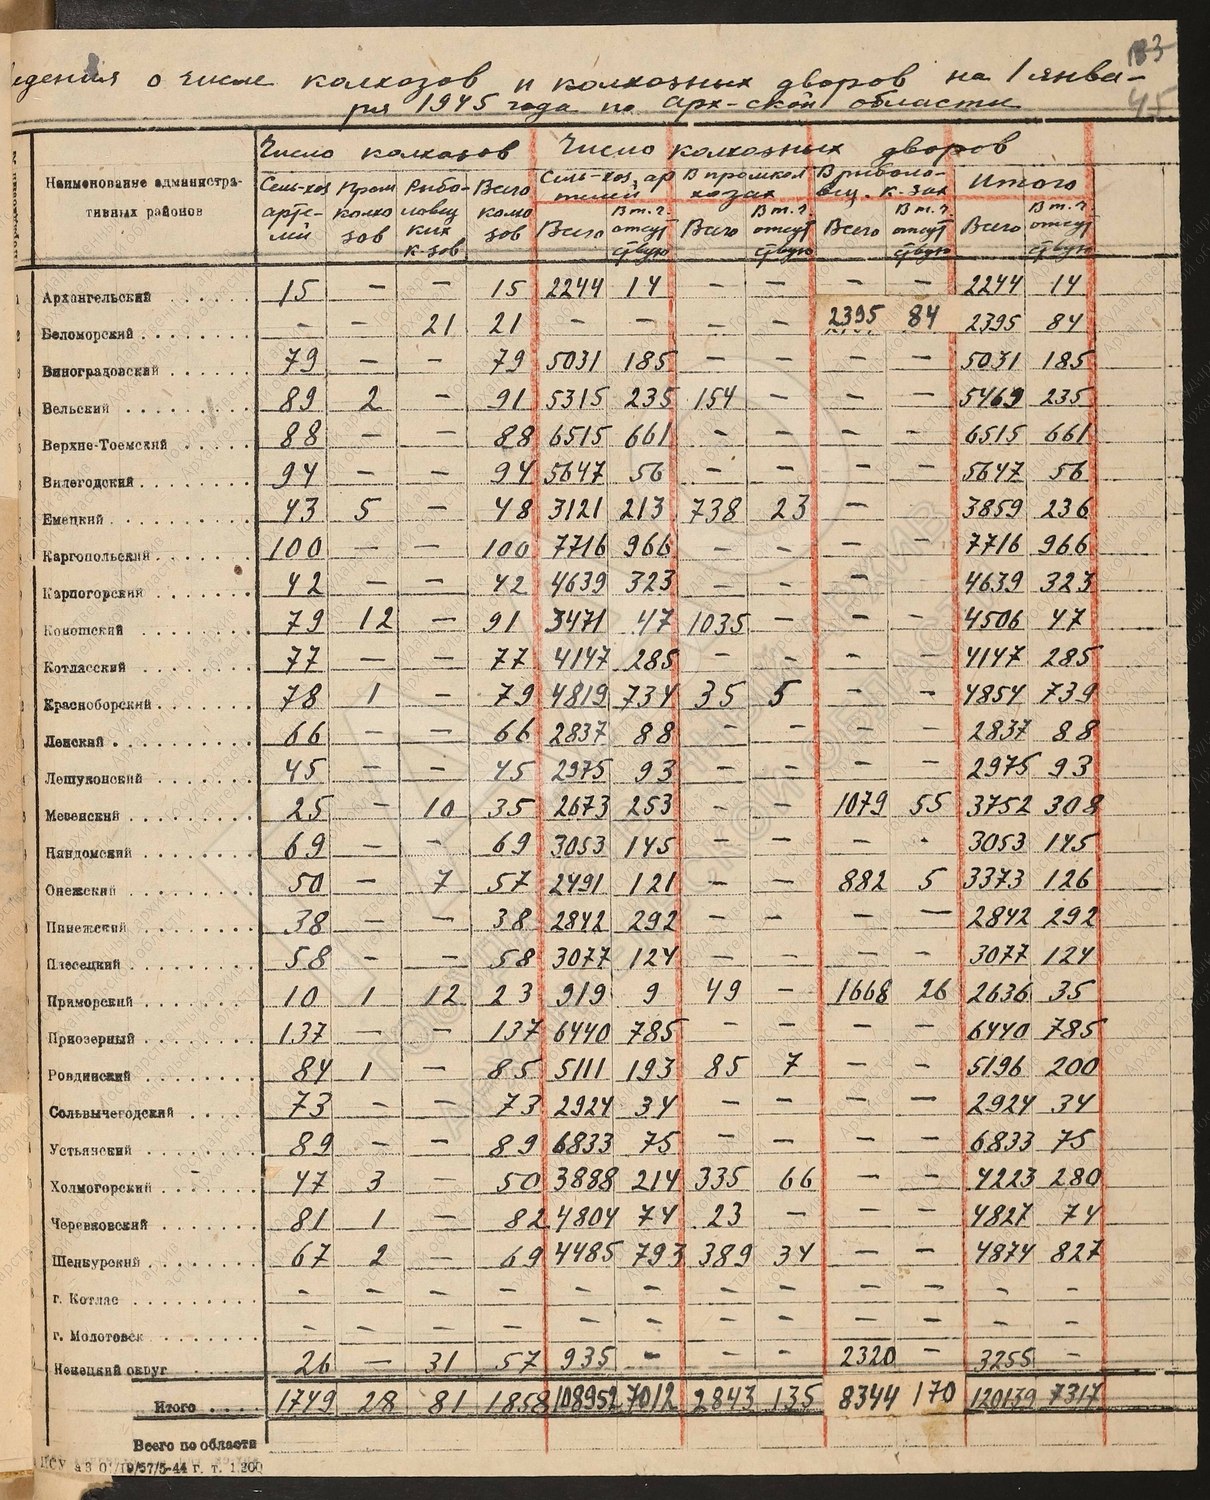 133
45.
едения о числе колхозов и колхозных дворов на 1 янва-
ря 1945 года по Арх-ской области
Наименование административных районов
Число колхозов
Число колхозных дворов
Сель-хоз артелей
Пром колхозов
Рыболовецких к-зов
Всего колхозов
Сель-хоз. артелей
В промколхозах
В рыболовец. к-зах
Итого
Всего
В т.ч. отсутствую
Всего
В т.ч. отсутствую
Всего
В т.ч. отсутствую
Всего
В т.ч. отсутствую
Архангельский 15 — — 15 2244 14 — — — — 2244 14
Беломорский — — 21 21 — — — — 2395 84 2395 84
Виноградовский 79 — — 79 5031 185 — — — — 5031 185
Вельский 89 2 — 91 5315 235 154 — — — 5469 235
Верхне-Тоемский 88 — — 88 6515 661 — — — — 6515 661
Вилегодский 94 — — 94 5647 56 — — — — 5647 56
Емецкий 43 5 — 48 3121 213 738 23 — — 3859 236
Каргопольский 100 — — 100 7716 966 — — — — 7716 966
Карпогорский 42 — — 42 4639 323 — — — — 4639 323
Коношский 79 12 — 91 3471 47 1035 — — — 4506 47
Котласский 77 — — 77 4147 285 — — — — 4147 285
Красноборский 78 1 — 79 4819 734 35 5 — — 4854 739
Ленский 66 — — 66 2837 88 — — — — 2837 88
Лешуконский 45 — — 45 2975 93 — — — — 2975 93
Мезенский 25 — 10 35 2673 253 — — 1079 55 3752 308
Няндомский 69 — — 69 3053 145 — — — — 3053 145
Онежский 50 — 7 57 2491 121 — — 882 5 3373 126
Пинежский 38 — — 38 2842 292 — — — — 2842 292
Плесецкий 58 — — 58 3077 124 — — — — 3077 124
Приморский 10 1 12 23 919 9 49 — 1668 26 2636 35
Приозерный 137 — — 137 6440 785 — — — — 6440 785
Ровдинский 84 1 — 85 5111 193 85 7 — — 5196 200
Сольвычегодский 73 — — 73 2924 34 — — — — 2924 34
Устьянский 89 — — 89 6833 75 — — — — 6833 75
Холмогорский 47 3 — 50 3888 214 335 66 — — 4223 280
Черевковский 81 1 — 82 4804 74 23 — — — 4827 74
Шенкурский 67 2 — 69 4485 793 389 34 — — 4874 827
г. Котлас — — — — — — — — — — — —
г. Молотовск — — — — — — — — — — — —
Ненецкий округ 26 — 31 57 935 — — — 2320 — 3255 —
Итого 1749 28 81 1858 108952 7012 2843 135 8344 170 120139 7317
Всего по области
19/57/5-44 г. т. 1200